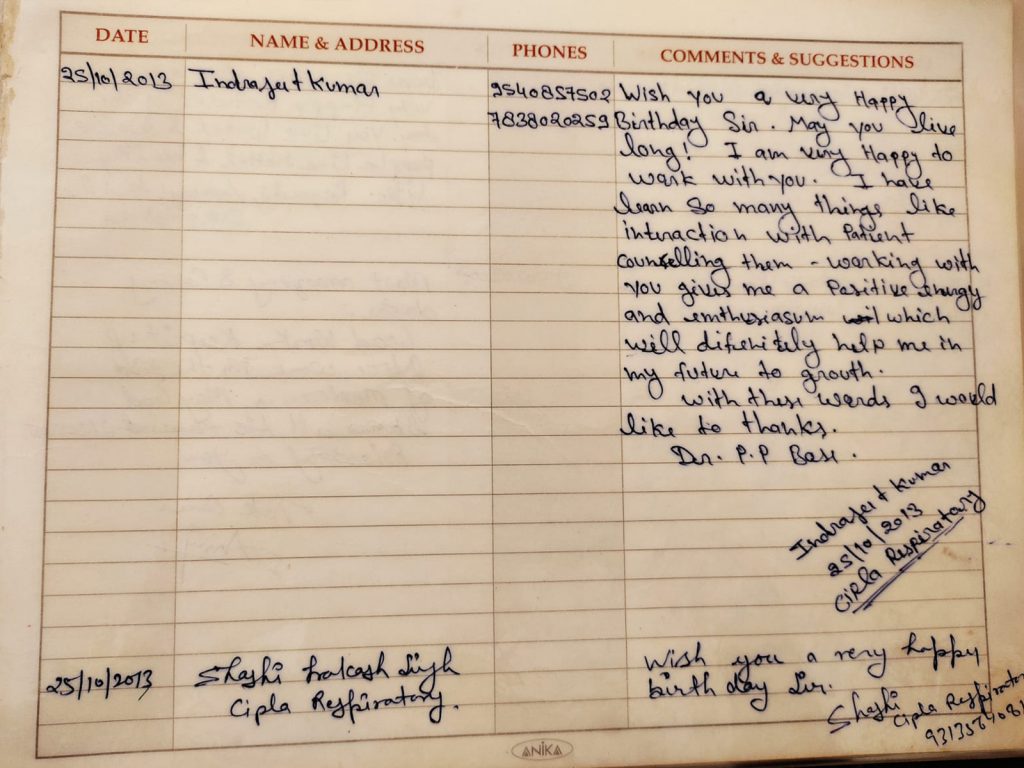 DATE NAME & ADDRESS PHONES COMMENTS & SUGGESTIONS
25/10/2013 Indrajeet Kumar 9540857502 Wish you a very Happy
7838020259 Birthday Sir. May you live
long! I am very Happy to
work with you. I have
learn So many things like
interaction with Patient
counselling them - working with
you gives me a Positive energy
and emthusiasum which
will difenitely help me in
my future to growth.
with these words I would
like to thanks.
Dr. P.P Bose.
Indrajeet Kumar
25/10/2013
Cipla Respiratory
25/10/2013 Shashi Prakash Singh Wish you a very happy
Cipla Respiratory. birth day Sir.
Shashi
Cipla Respirator
ANIKA